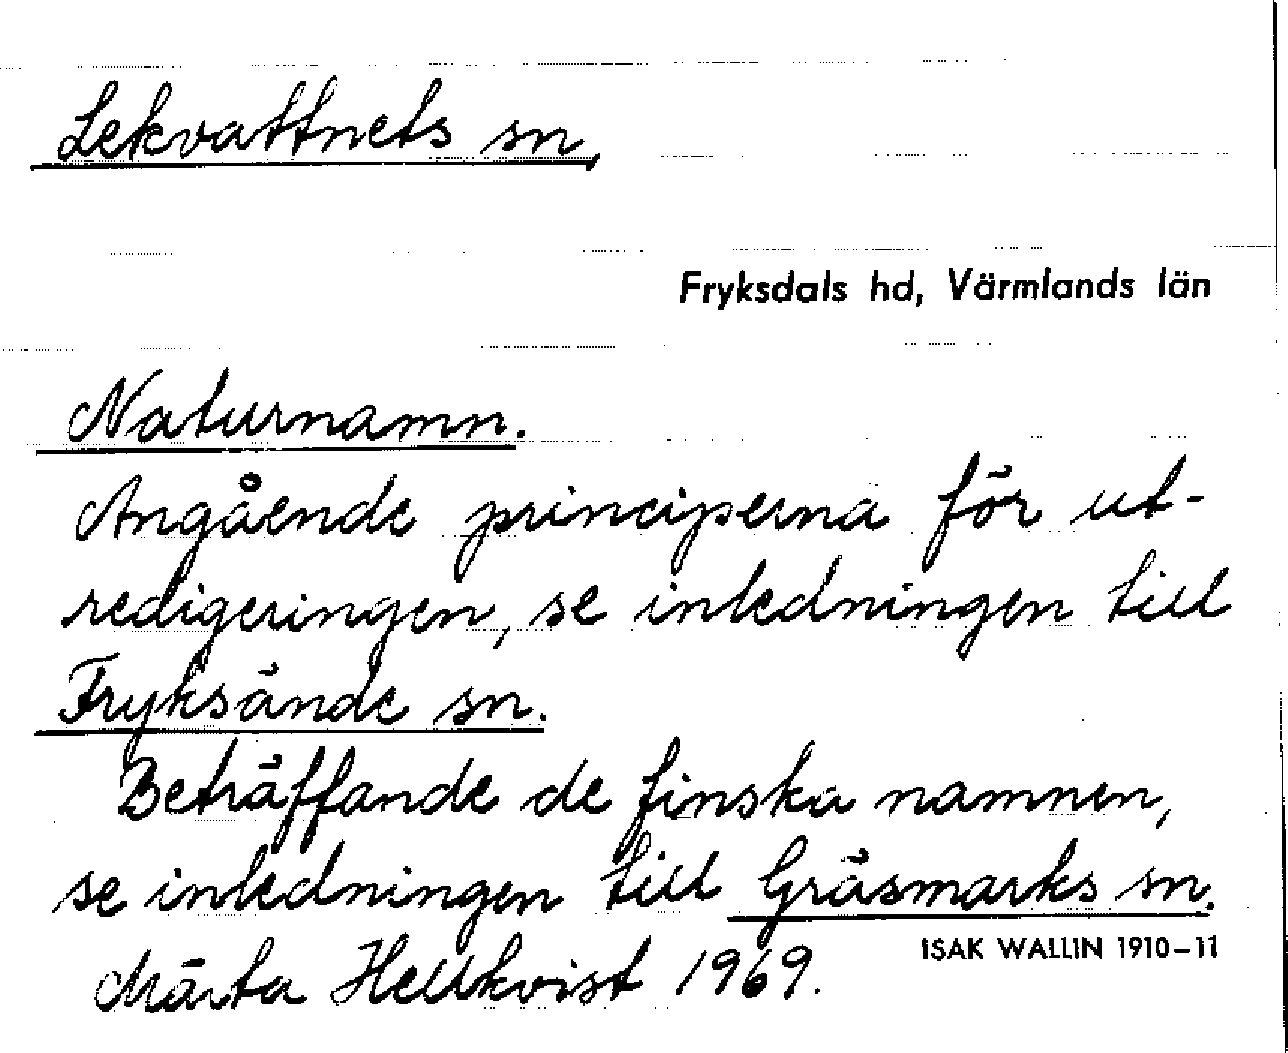 Lekvattnets sn,
Fryksdals hd, Värmlands län
Naturnamn.
Angående principerna för ut-
redigeringen, se inledningen till
Fryksände sn.
Beträffande de finska namnen,
se inledningen till Gräsmarks sn.
ISAK WALLIN 1910-11
Märta Hellkvist 1969.